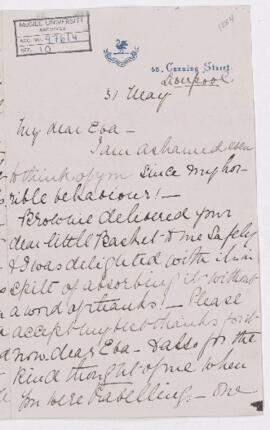 McGILL UNIVERSITY
ARCHIVES
ACC. NO.
REF. 10
1884
65. Canning Street.
Liverpool.
31 May
My dear Eva -
I am ashamed even
to think of you since my hor-
rible behaviour! -
Brownie delivered your
dear little Basket to me safely
& I was delighted with it in
spite of absorbing it without
a word of thanks! - Please
accept my best thanks for it
now dear Eva - & also for the
kind thought of me when
you were travelling - one